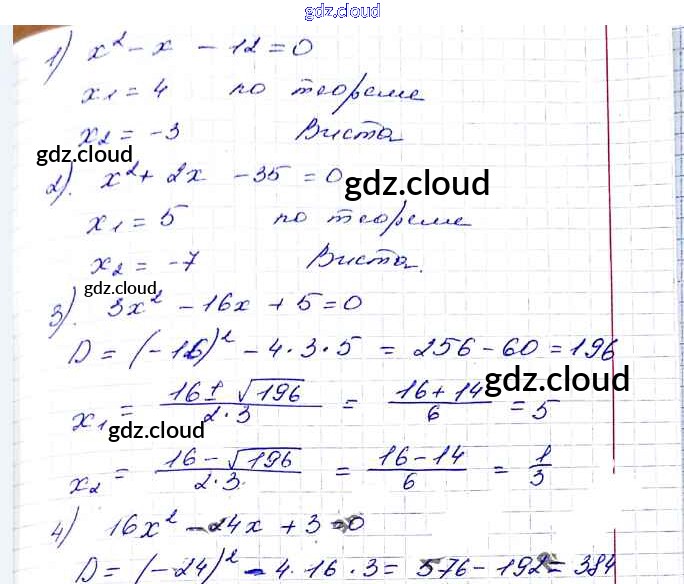 gdz.cloud
1) x² - x - 12 = 0
x₁ = 4 по теореме
x₂ = -3 Виета
gdz.cloud
2). x² + 2x - 35 = 0
gdz.cloud
x₁ = 5 по теореме
x₂ = -7 Виета.
gdz.cloud
3). 3x² - 16x + 5 = 0
D = (-16)² - 4·3·5 = 256 - 60 = 196
gdz.cloud
x₁ = (16 + √196)/(2·3) = (16 + 14)/6 = 5
gdz.cloud
x₂ = (16 - √196)/(2·3) = (16 - 14)/6 = 1/3
4) 16x² - 24x + 3 = 0
D = (-24)² - 4·16·3 = 576 - 192 = 384